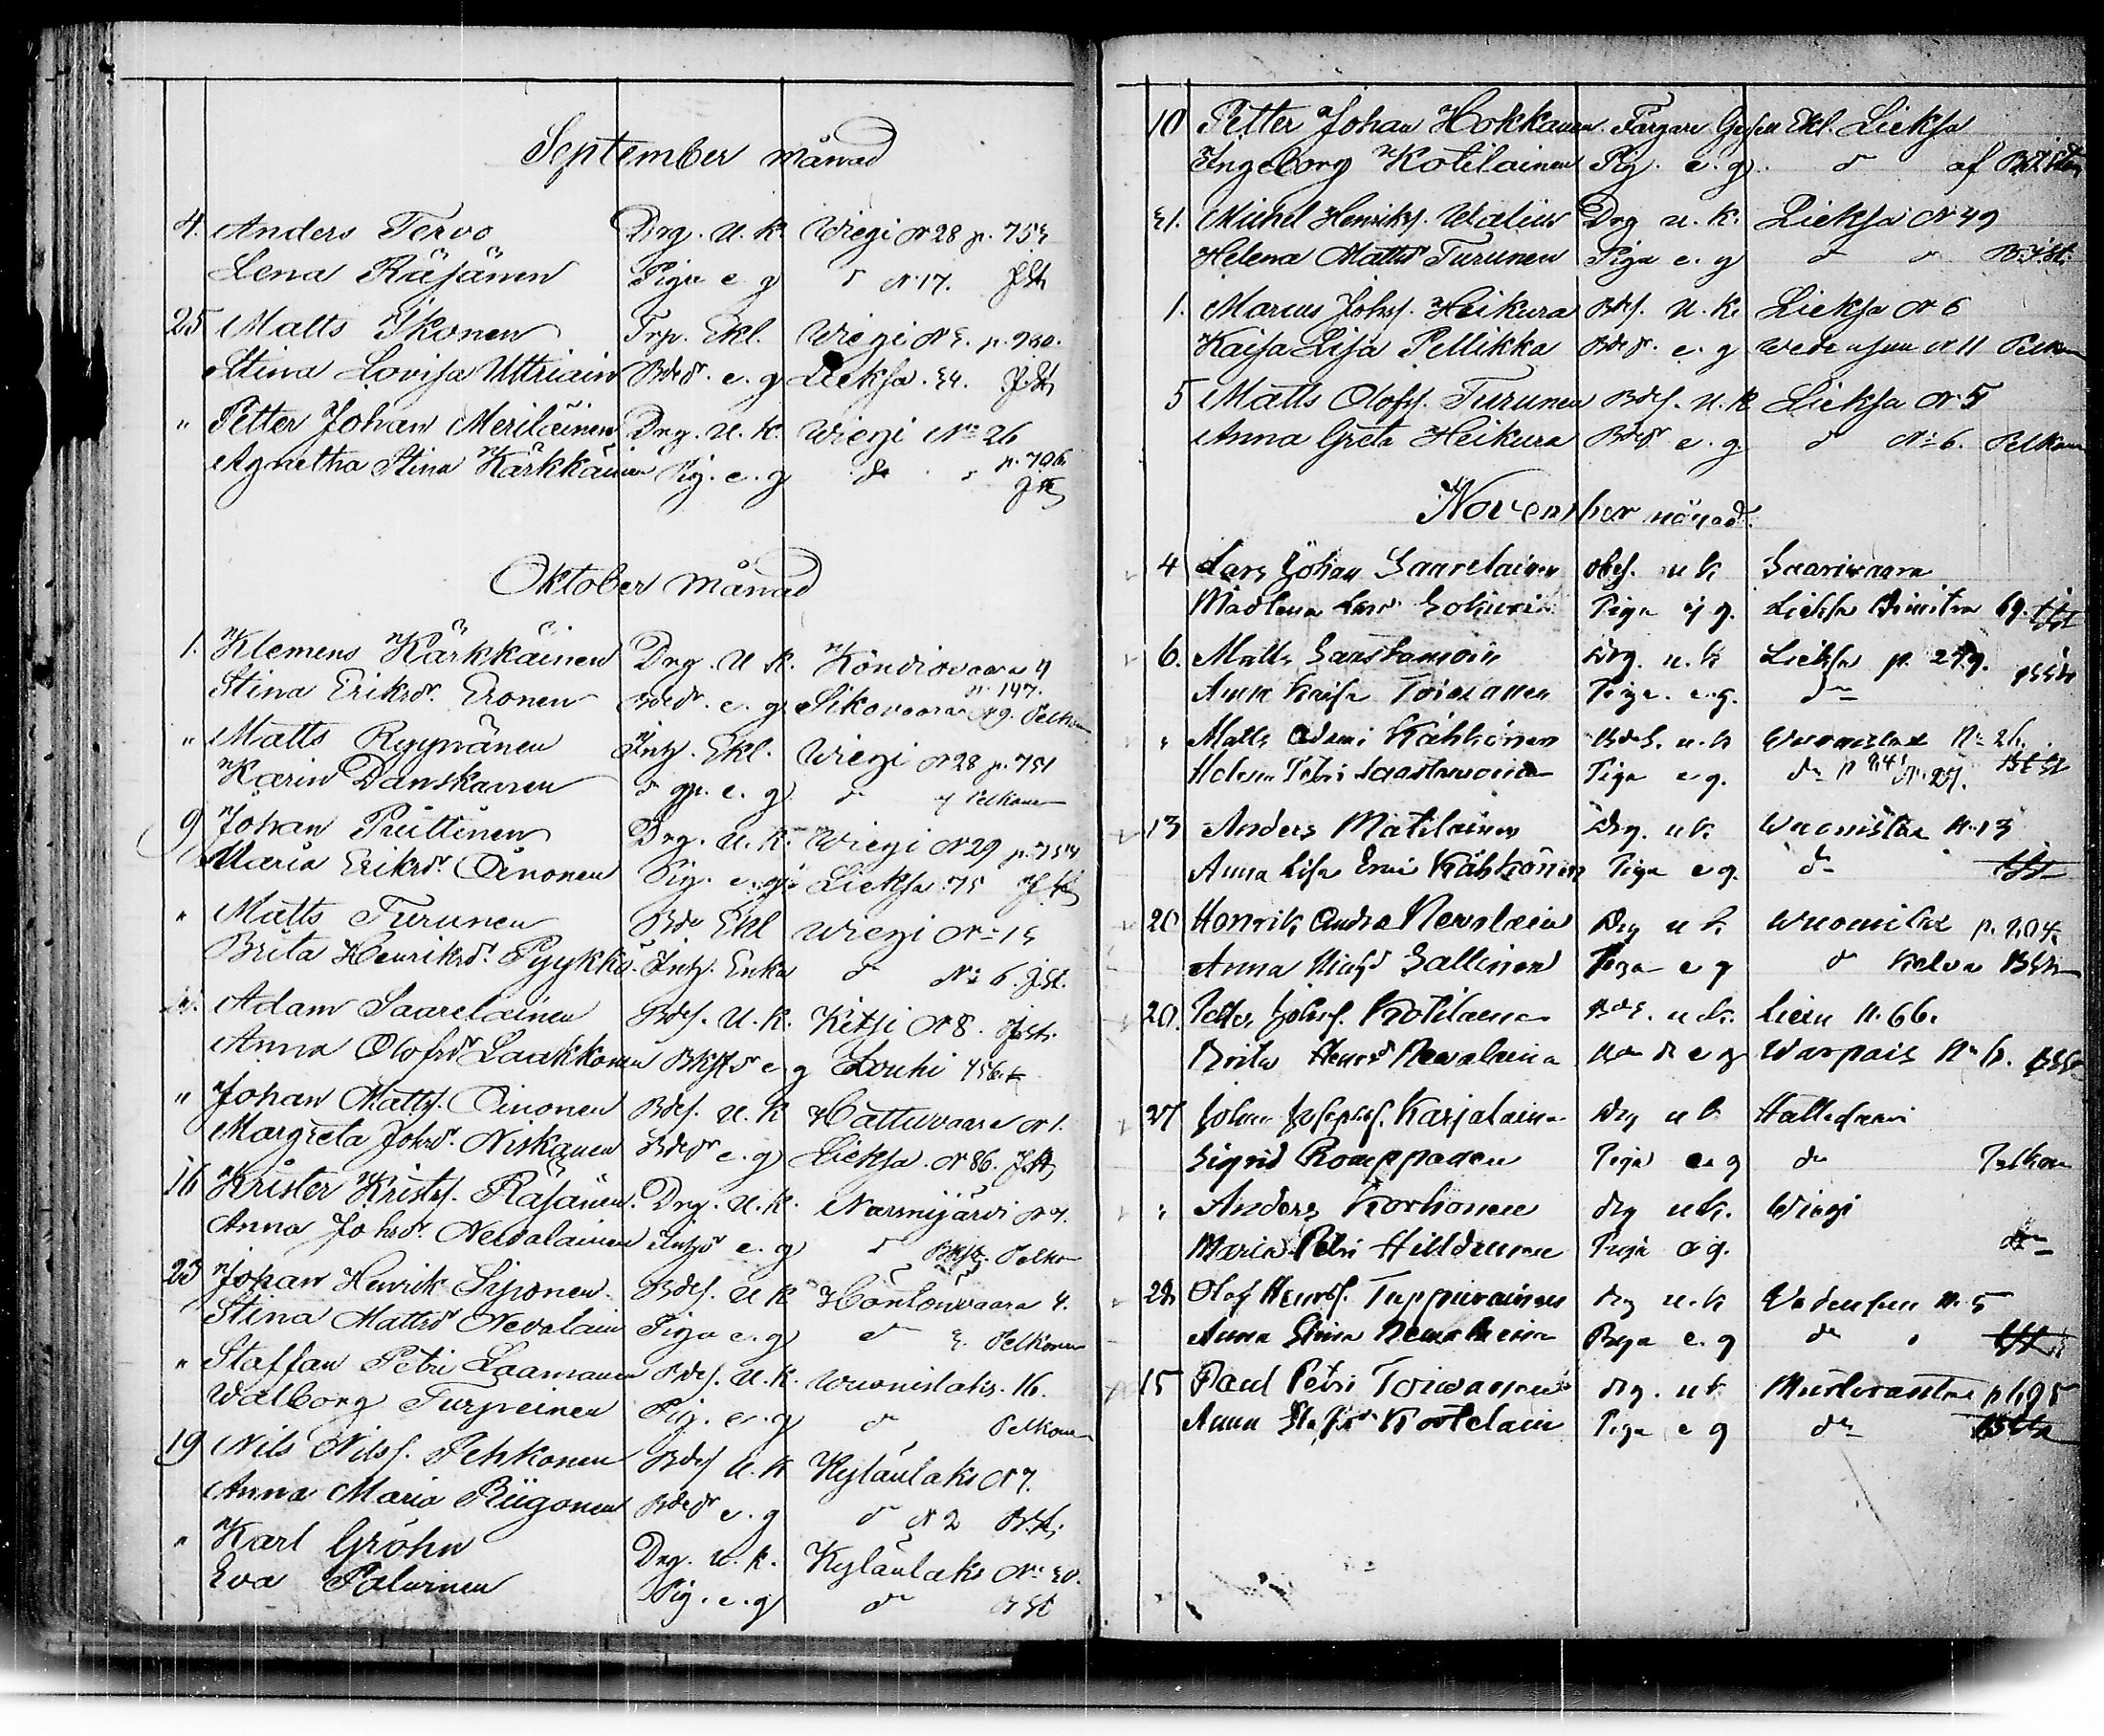 September månad
4. Anders Tervo Drg. U. K. Wiegi N 28 p. 753
Lena Räsänen Piga e. g d N 17. JSt
25 Matts Ikonen Trp. Ekl. Wiegi N 3. p. 980.
Stina Lovisa Uttriain Bdedr. e. g Lieksa. 34. JSt
" Petter Johan Meriläinen Drg. U. K. Wiegi No 26
Agnetha Stina Kärkkäinen Pig. e. g do d p. 706
JSt
Oktober månad
1. Klemens Kärkkäinen Drg. U. K. Kondiovaara 4
Stina Eriksdr. Eronen Bdedr. e. g Sikovaara N 9. p. 147. Pelkonen
" Matts Ryynänen Inh. Ekl. Wiegi N 28 p. 751
Karin Danskanen d gp. e. g d Pelkonen
9 Johan Puittinen Drg. U. K. Wiegi N 29 p. 754
Maria Eriksdr. Oinonen Pig. e. g Lieksa 75 JSt
" Matts Turunen Bde Ekl Wiegi No 13
Brita Henriksdr. Pyykkö. Inh. Enka d No 6. JSt.
Adam Saarelainen Bdes. U. K. Kitsi N 8. JSt.
Anna Olofsdr Laukkonen e. g Louhi 456
" Johan Matts. Oinonen Bdes. U. K Hattuvaara N 1.
Margreta Johsdr. Niskanen Bdedr e. g Lieksa. N 86. JSt
16 Krister Kristes. Räsänen. Drg. U. K. Nurmijärvi N 7.
Anna Johsdr. Nevalainen Inhdr e. g d Pelko
23 Johan Henrik Piponen. Bdes. U K Höntönvaara 4.
Stina Mattsdr Nevalain Piga e. g d 3. Pelkonen
" Staffan Petri Laamanen Bdes. U. K. Wuonislaks. 16.
Walborg Turpeinen Pig. e. g d Pelkonen
19 Nils Nilss. Pehkonen Bdes U. K Kylänlaks N 7.
Anna Maria Riigonen Bdedr e. g d N 2 BSt.
" Karl Gröhn Drg. U. K. Kylänlaks No 30.
Eva Palvinen Pig. e. g d BSt
10 Petter Johan Hokkanen. Färgare Gesell Ekl. Lieksa
Ingeborg Kotilainen Pig. e. g. d af BSt
31. Michel Henriks. Walius Drg U. K. Lieksa N 49
Helena Mattsdr Turunen Piga e. g d d B.St.
1. Marcus Johss. Heikura Bdes. U. K. Lieksa N 6
Kaisa Lisa Pellikka Bdedr. e. g Wedensuu N 11 Pelkonen
5 Matts Olofss. Turunen Bdes. U. K Lieksa N 5
Anna Greta Heikura Bdedr e. g d No 6. Pelkonen
November månad.
4 Lars Johan Saarelainen obes. u k Saarivaara
Madlena Piga e g. Lieksa 69.
6. Matts Saastamoin Drg. u. k Lieksa p. 249.
Anna Kaisa Toivanen Piga. e. g. do
" Matts Adami Kähkönen Bdes. u. k Wuonislax No 26.
Helena Petri Saastamoinen Piga e g. do N. 27. BSt
13 Anders Matilainen Drg. u k. Wuonislax N. 13
Anna Lisa Kähkönen Piga e g. do
20 Henrik Andrs Nevalain Drg u k. Wuonislax p. 204
Anna Sallinen Piga e g d
20. Petter Johss. Kotilainen Bdes. u. k. N. 66.
Brita Henrsdr Nevalaina e g Warpais
27 Johan Josephss. Karjalain Drg u k
Sigrid Romppanen Piga e g do Pelkon
" Anders Korhonen drg u k. Wiegi
Maria Petri Hilldunen Piga e g.
28 Olof Henrss. Tuppurainen drg u. k Vedensuu N. 5
Anna Stina Nevalain Piga e. g do
15 Paul Petri Toivanen drg. u k p. 695
Anna Kortelain Piga e g do